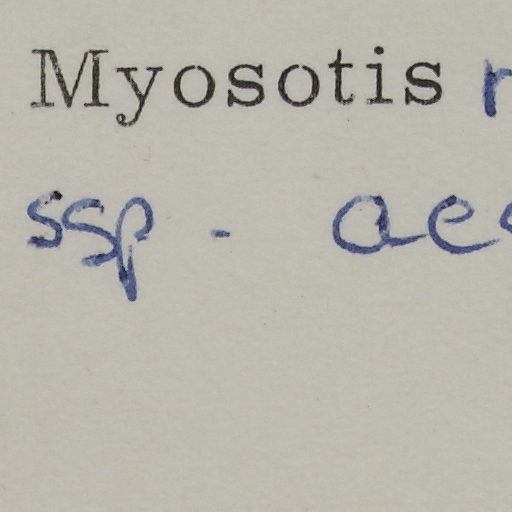 Myosotis
ssp.